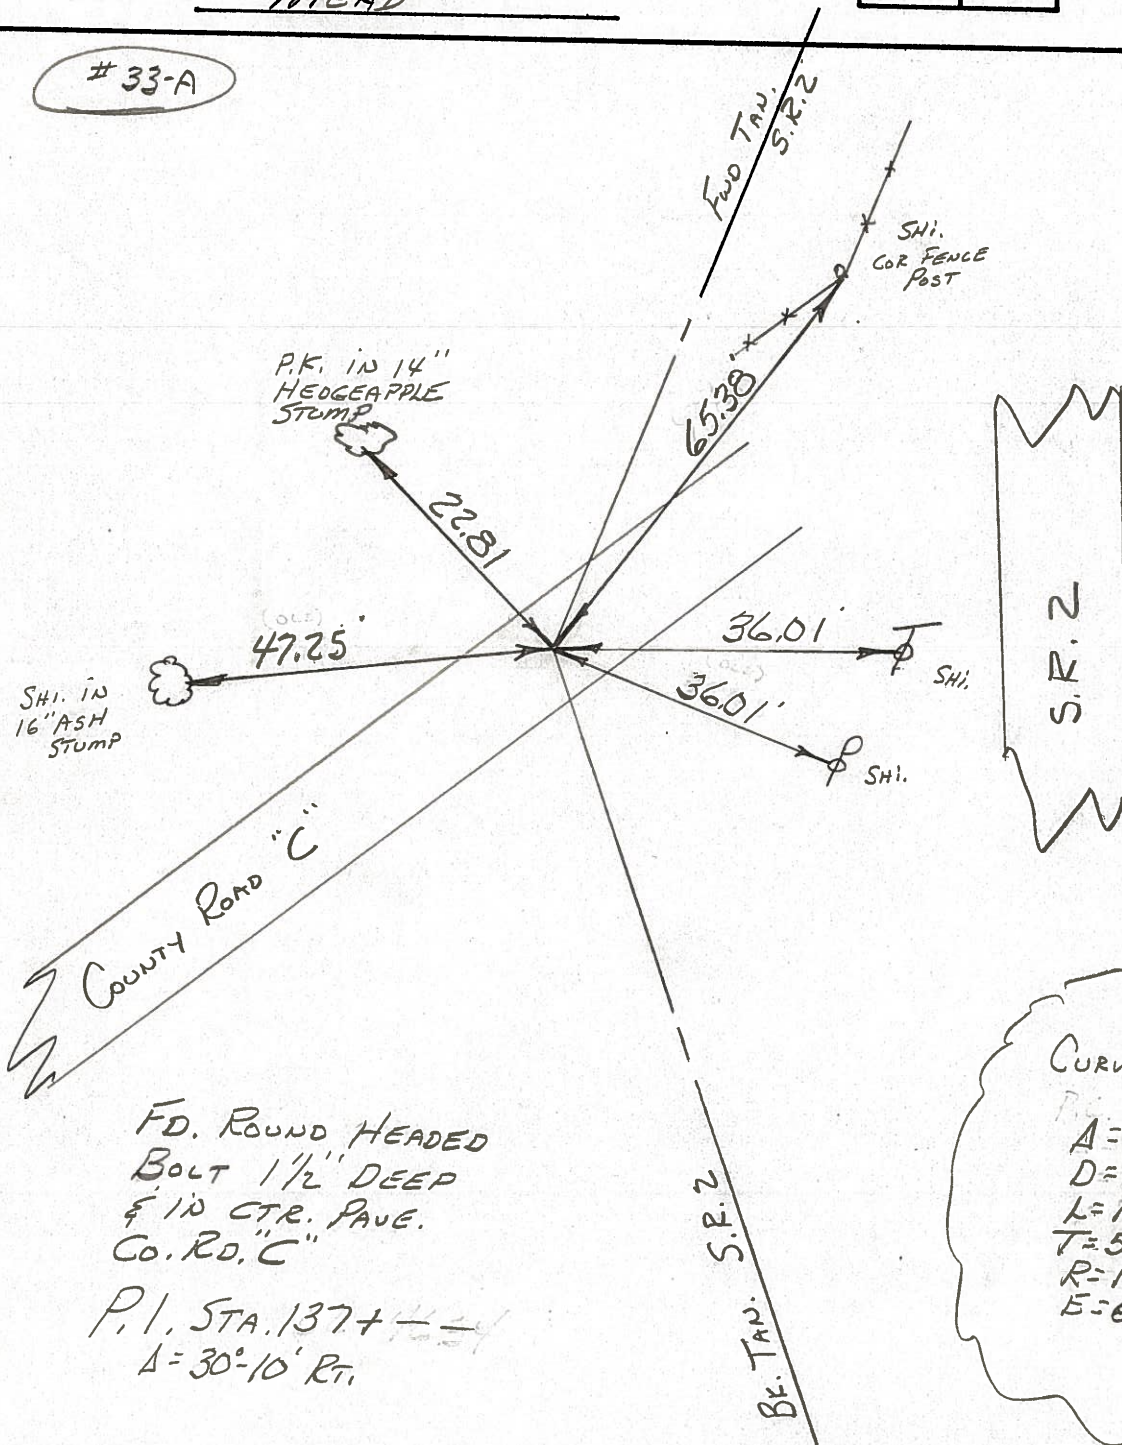 # 33-A
FWD TAN.
S.R.2
SHI.
COR FENCE
POST
P.K. IN 14"
HEDGEAPPLE
STUMP
65.38'
22.81
47.25'
36.01'
SHI.
SHI. IN
16" ASH
STUMP
36.01'
SHI.
S.R. 2
COUNTY ROAD "C"
FD. ROUND HEADED
BOLT 1 1/2" DEEP
& IN CTR. PAVE.
CO. RD. "C"
P.I. STA. 137+ - -
Δ = 30°-10' RT.
BK. TAN. S.R. 2
Δ =
D =
L = 1
T = 5
R = 1
E = 6